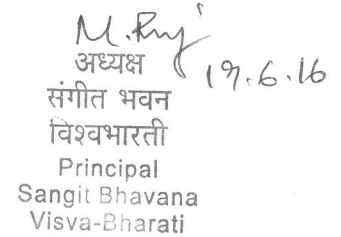 अध्यक्ष
19.6.16
संगीत भवन
विश्वभारती
Principal
Sangit Bhavana
Visva-Bharati